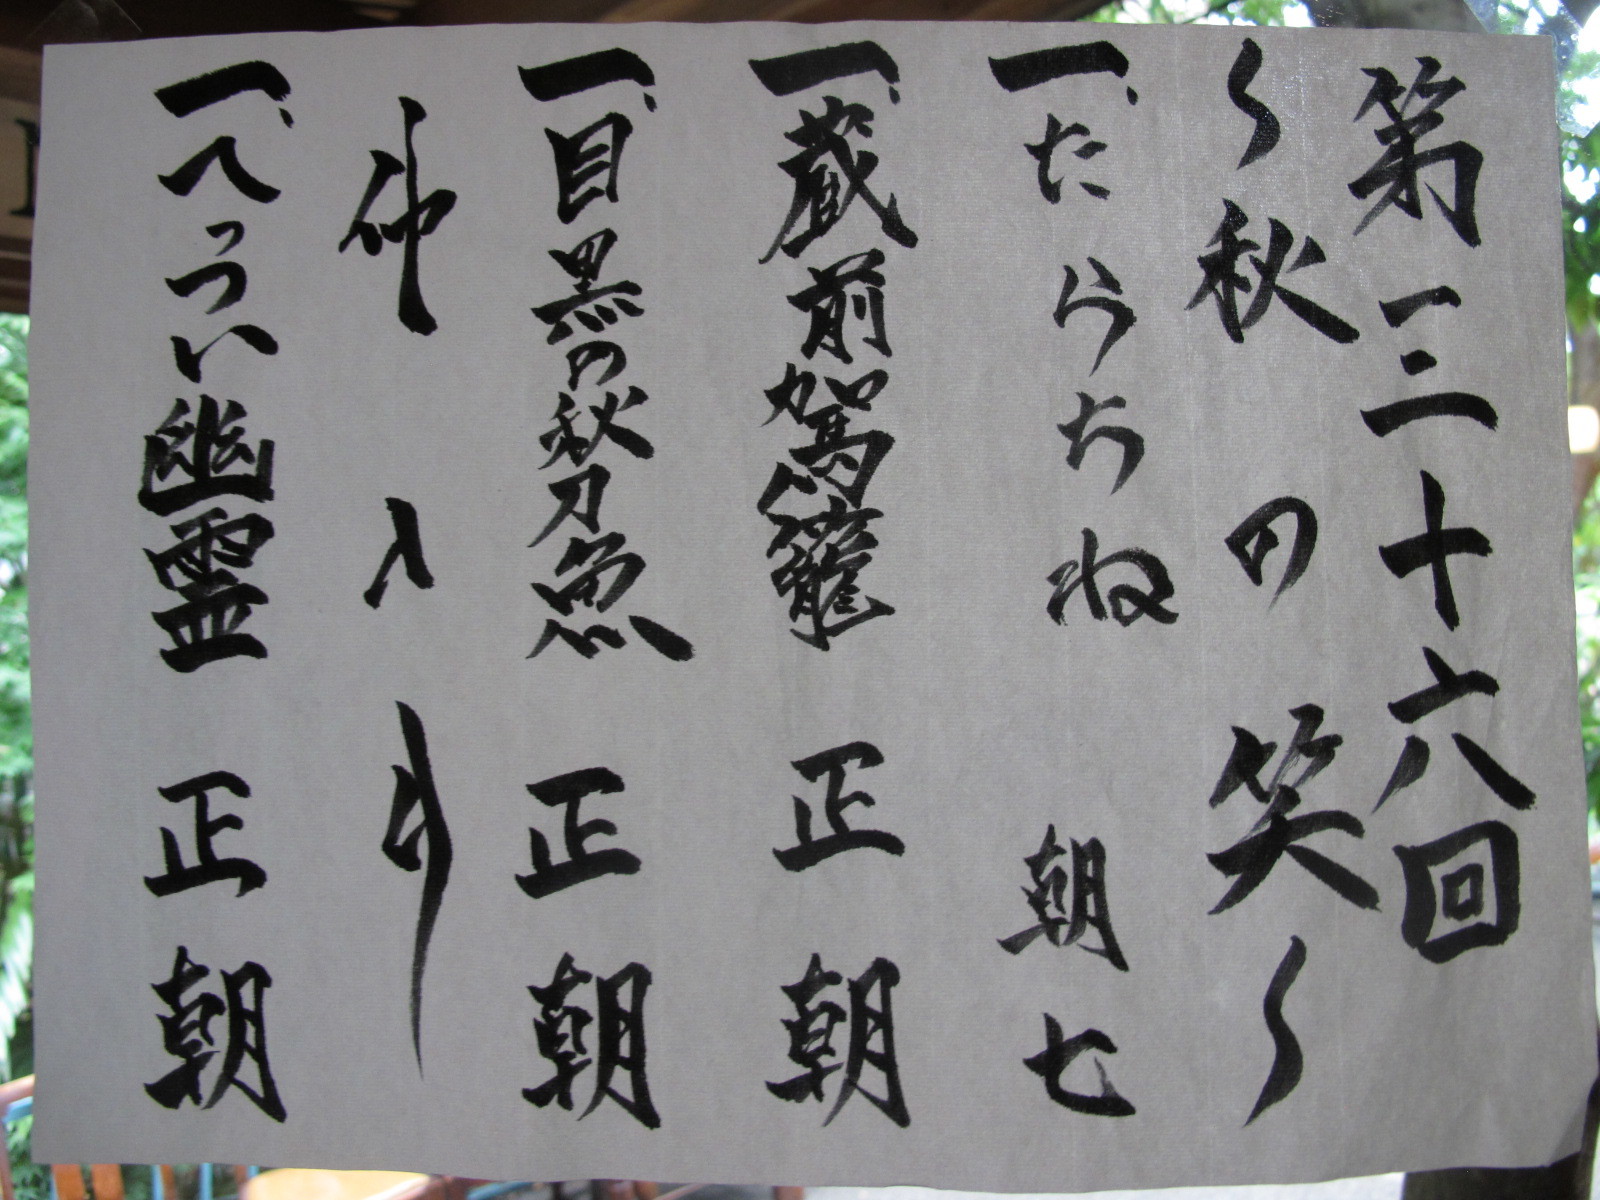 第三十六回
〜秋の笑〜
一、たらちね 朝七
一、蔵前駕籠 正朝
一、目黒の秋刀魚 正朝
仲入り
一、へっつい幽霊 正朝